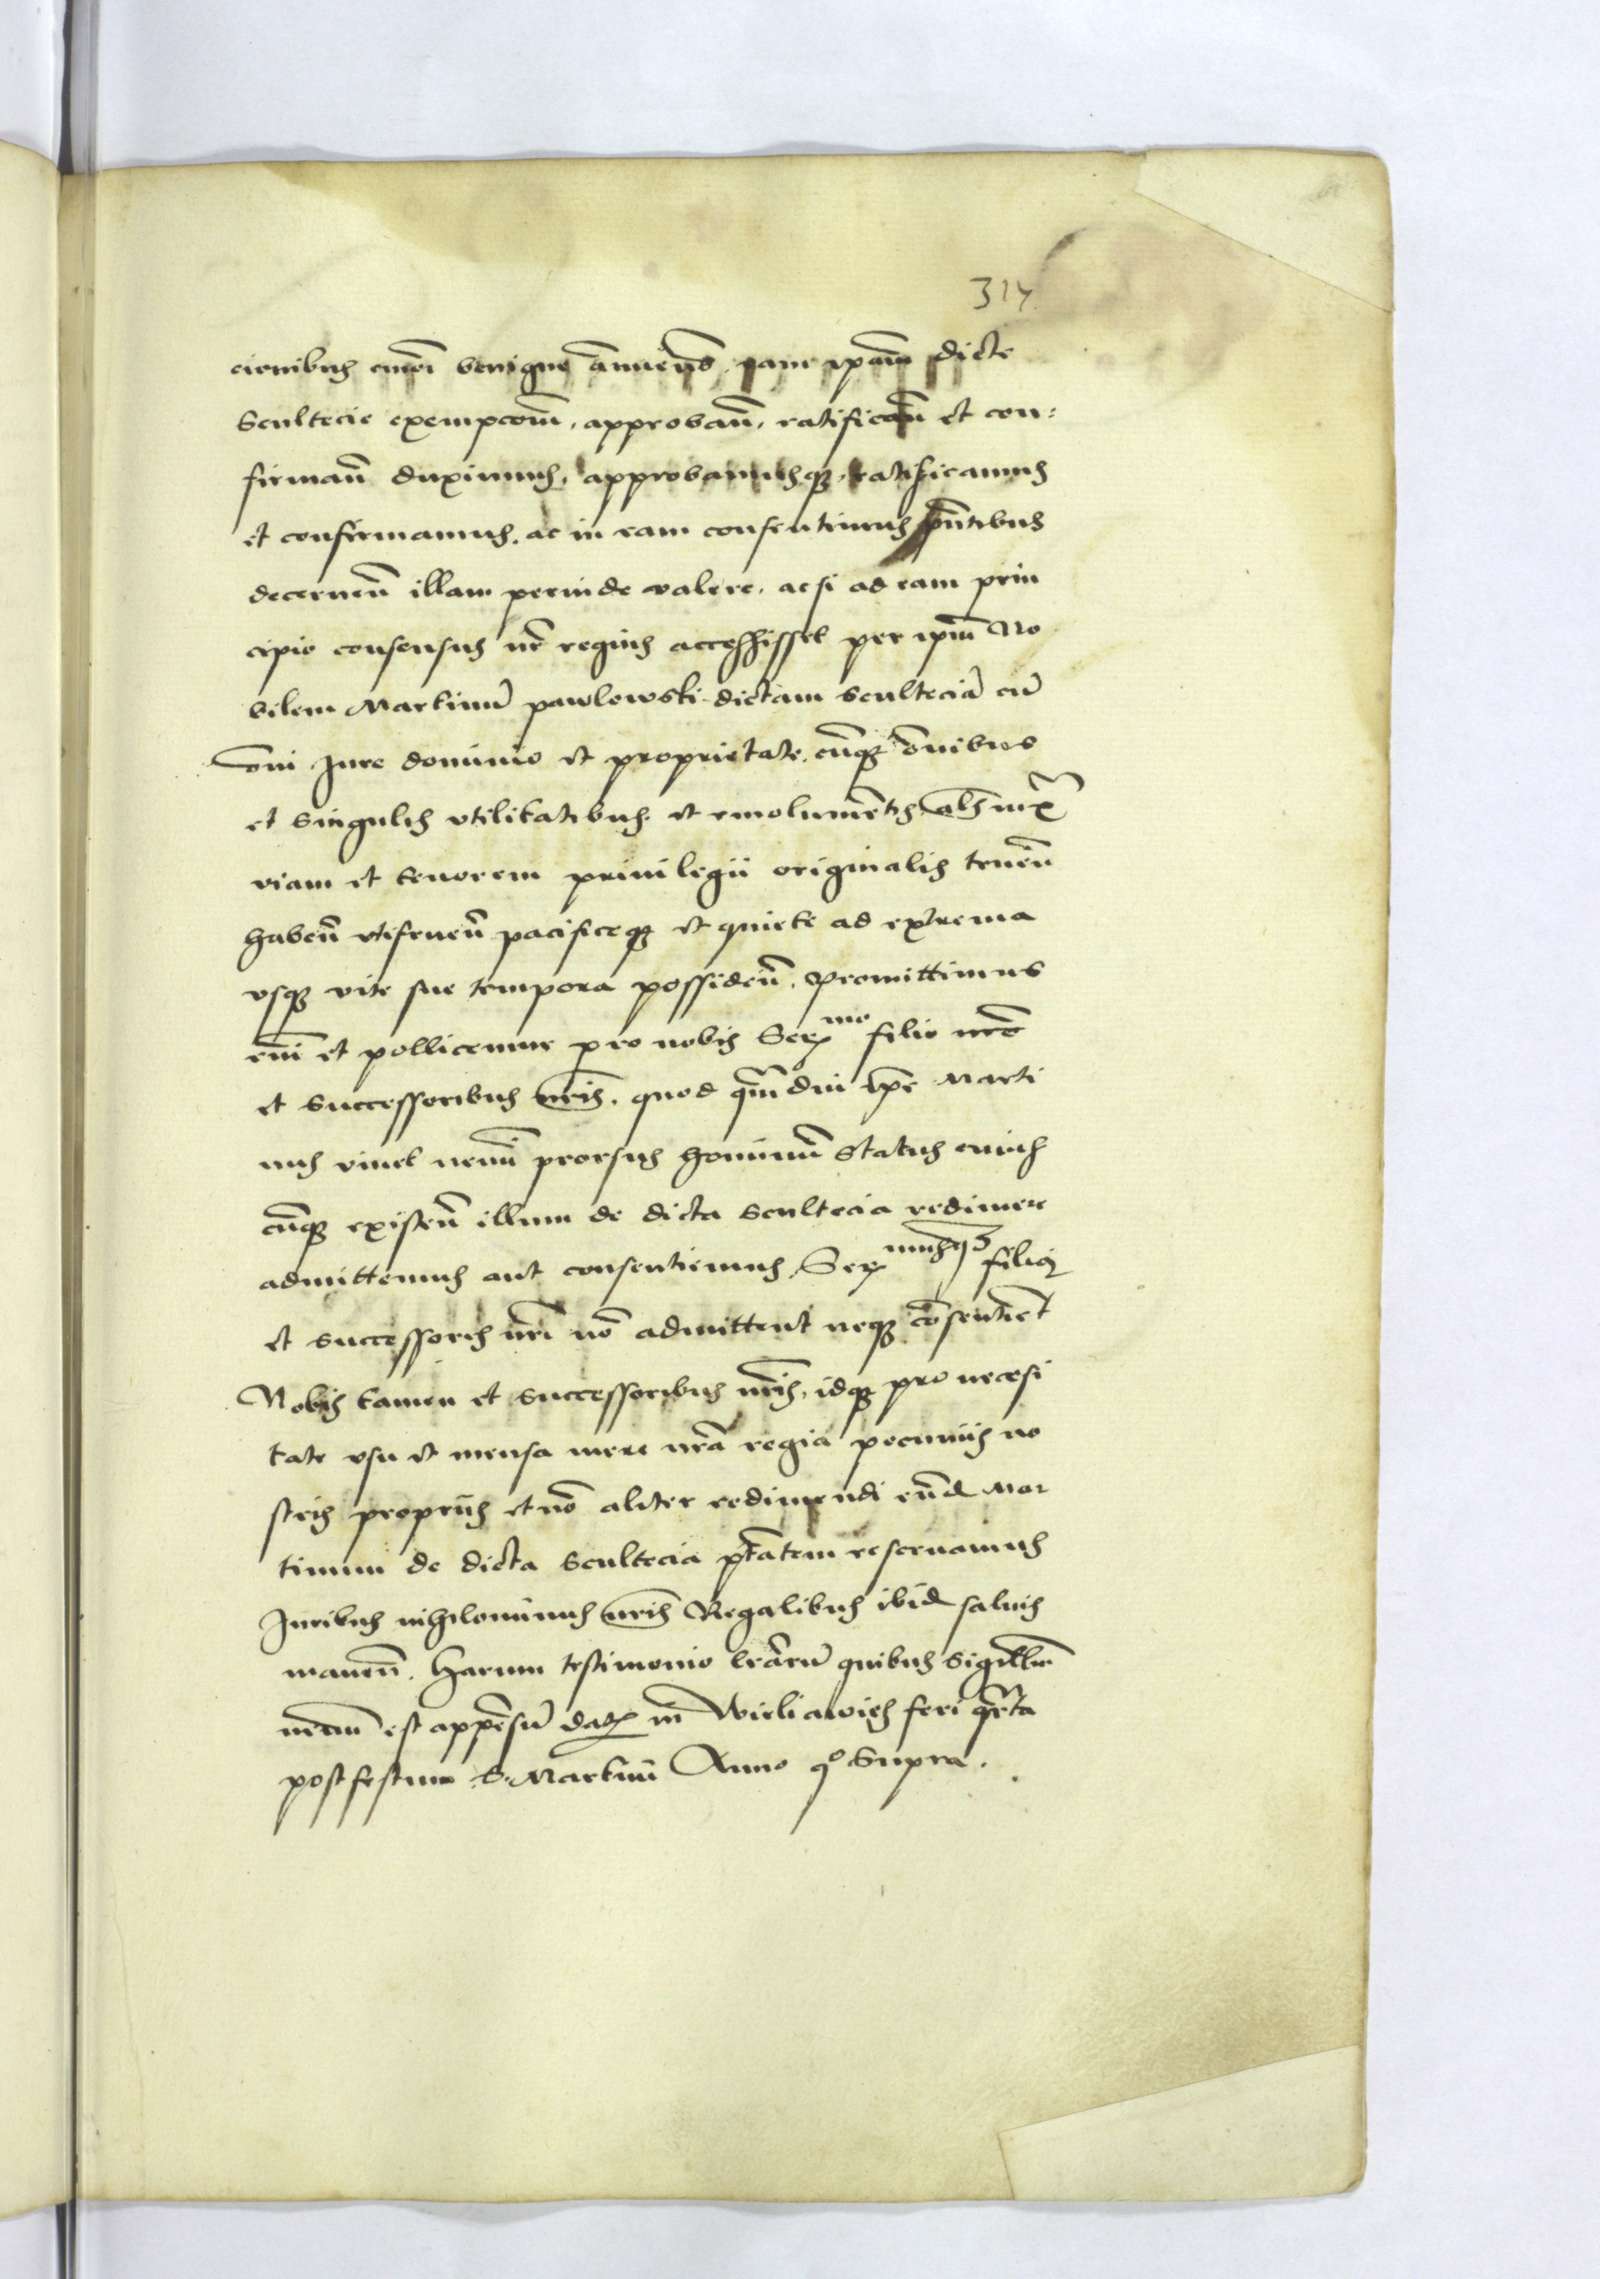 314
cionibus annuens ipam dicte
Scultecie exempcom, approban, ratifican et con:
firman duximus, approbamusq, ratificamus
et confirmamus. ac in eam consentimus pntibus
decernen illam perinde valere, acsi ad eam prin
cipio consensus nr regius accessisset per ipm No
bilem Martinu pawlowski dictam scultecia cu
omi Jure dominio et proprietate, cuq omnibus
et singulis vtilitatibus et emolumetis
viam et tenorem priuilegii originalis tenen
haben vtifruen pacificeq et quiete ad extrema
vsq vite sue tempora possiden. Promittimus
eni et pollicemur pro nobis Ser mo filio nro
et successoribus nris. quod qmdiu ipe Marti
nus viuet nemi prorsus hominum status cuius
cuq existen illum de dicta scultecia redimere
admittemus aut consentiemus, Ser musq filius
et successores nri no admittent neq cosentiet
Nobis tamen et successoribus nris, idq pro necesi
tate vsu et mensa mere nra regia pecuniis no
stris propriis et no aliter redimendi eund Mar
tinum de dicta scultecia ptatem reseruamus
Juribus nihilominus nris Regalibus ibid saluis
manen. Harum testimonio lrarum quibus sigillum
nrum est appesu dat in feri qrta
post festum S. Martini Anno qo supra.